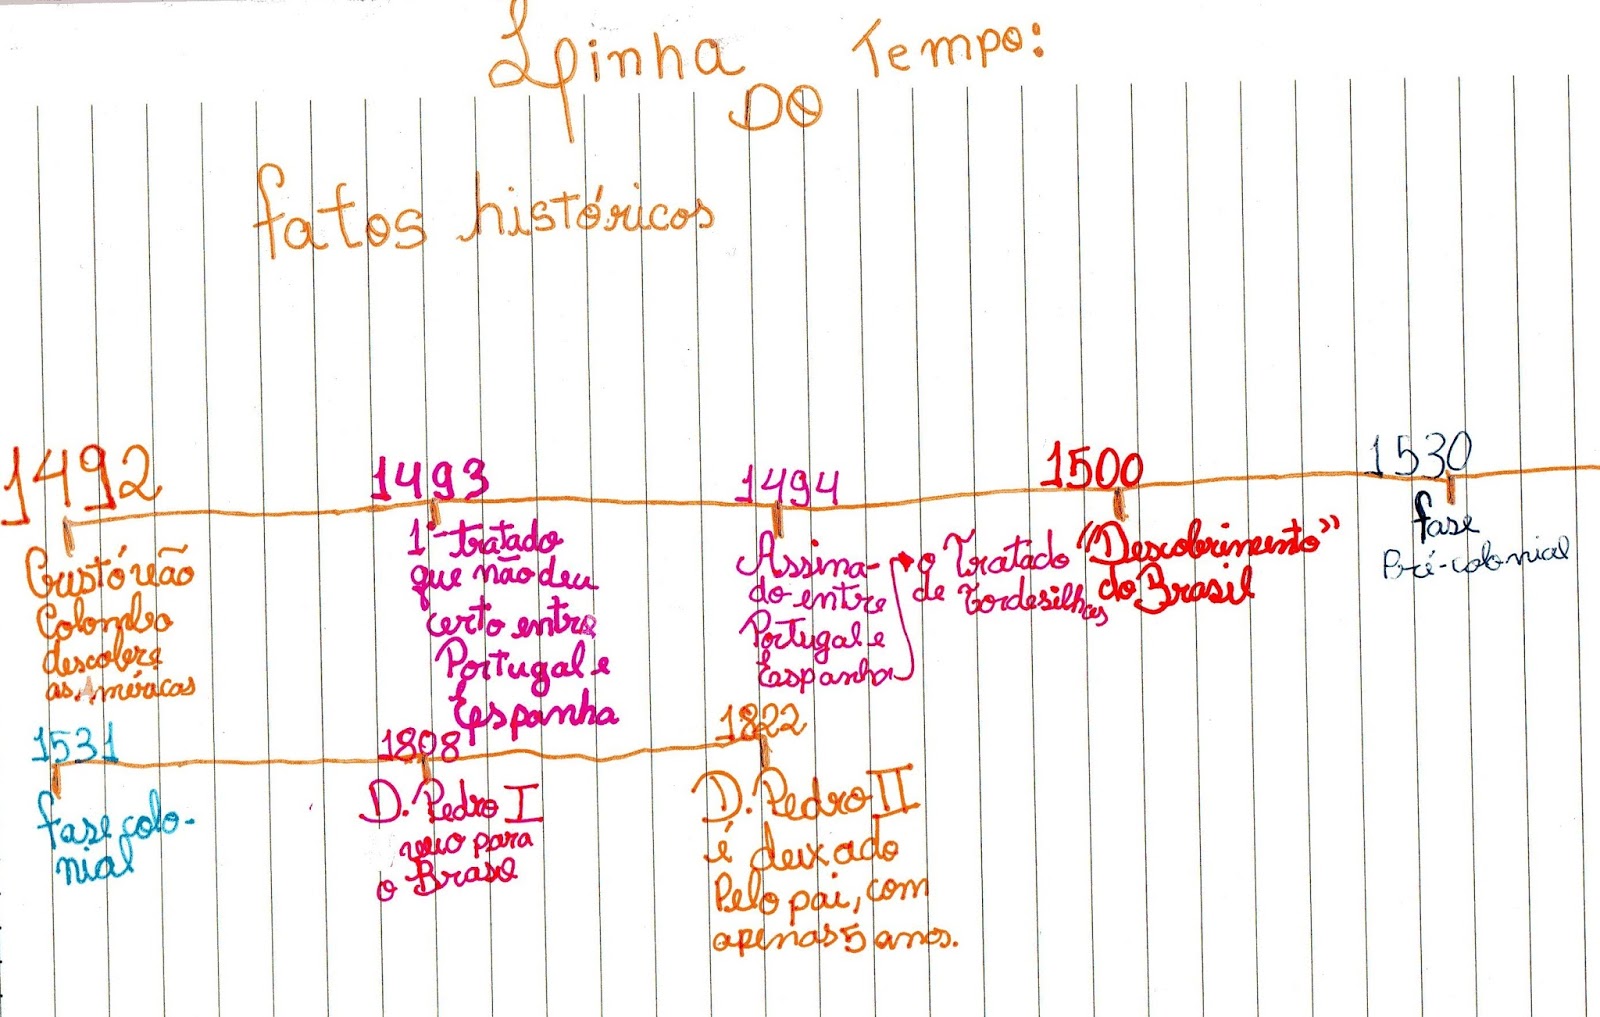 Linha DO Tempo:
fatos históricos
1492
Cristóvão
Colombo
descobre
as Américas
1493
1º tratado
que não deu
certo entre
Portugal e
Espanha
1494
Assina-
do entre
Portugal e
Espanha
o Tratado
de Tordesilhas
1500
"Descobrimento"
do Brasil
1530
fase
Pré-colonial
1531
fase colo-
nial
1808
D. Pedro I
veio para
o Brasil
1822
D. Pedro II
é deixado
Pelo pai, com
apenas 5 anos.